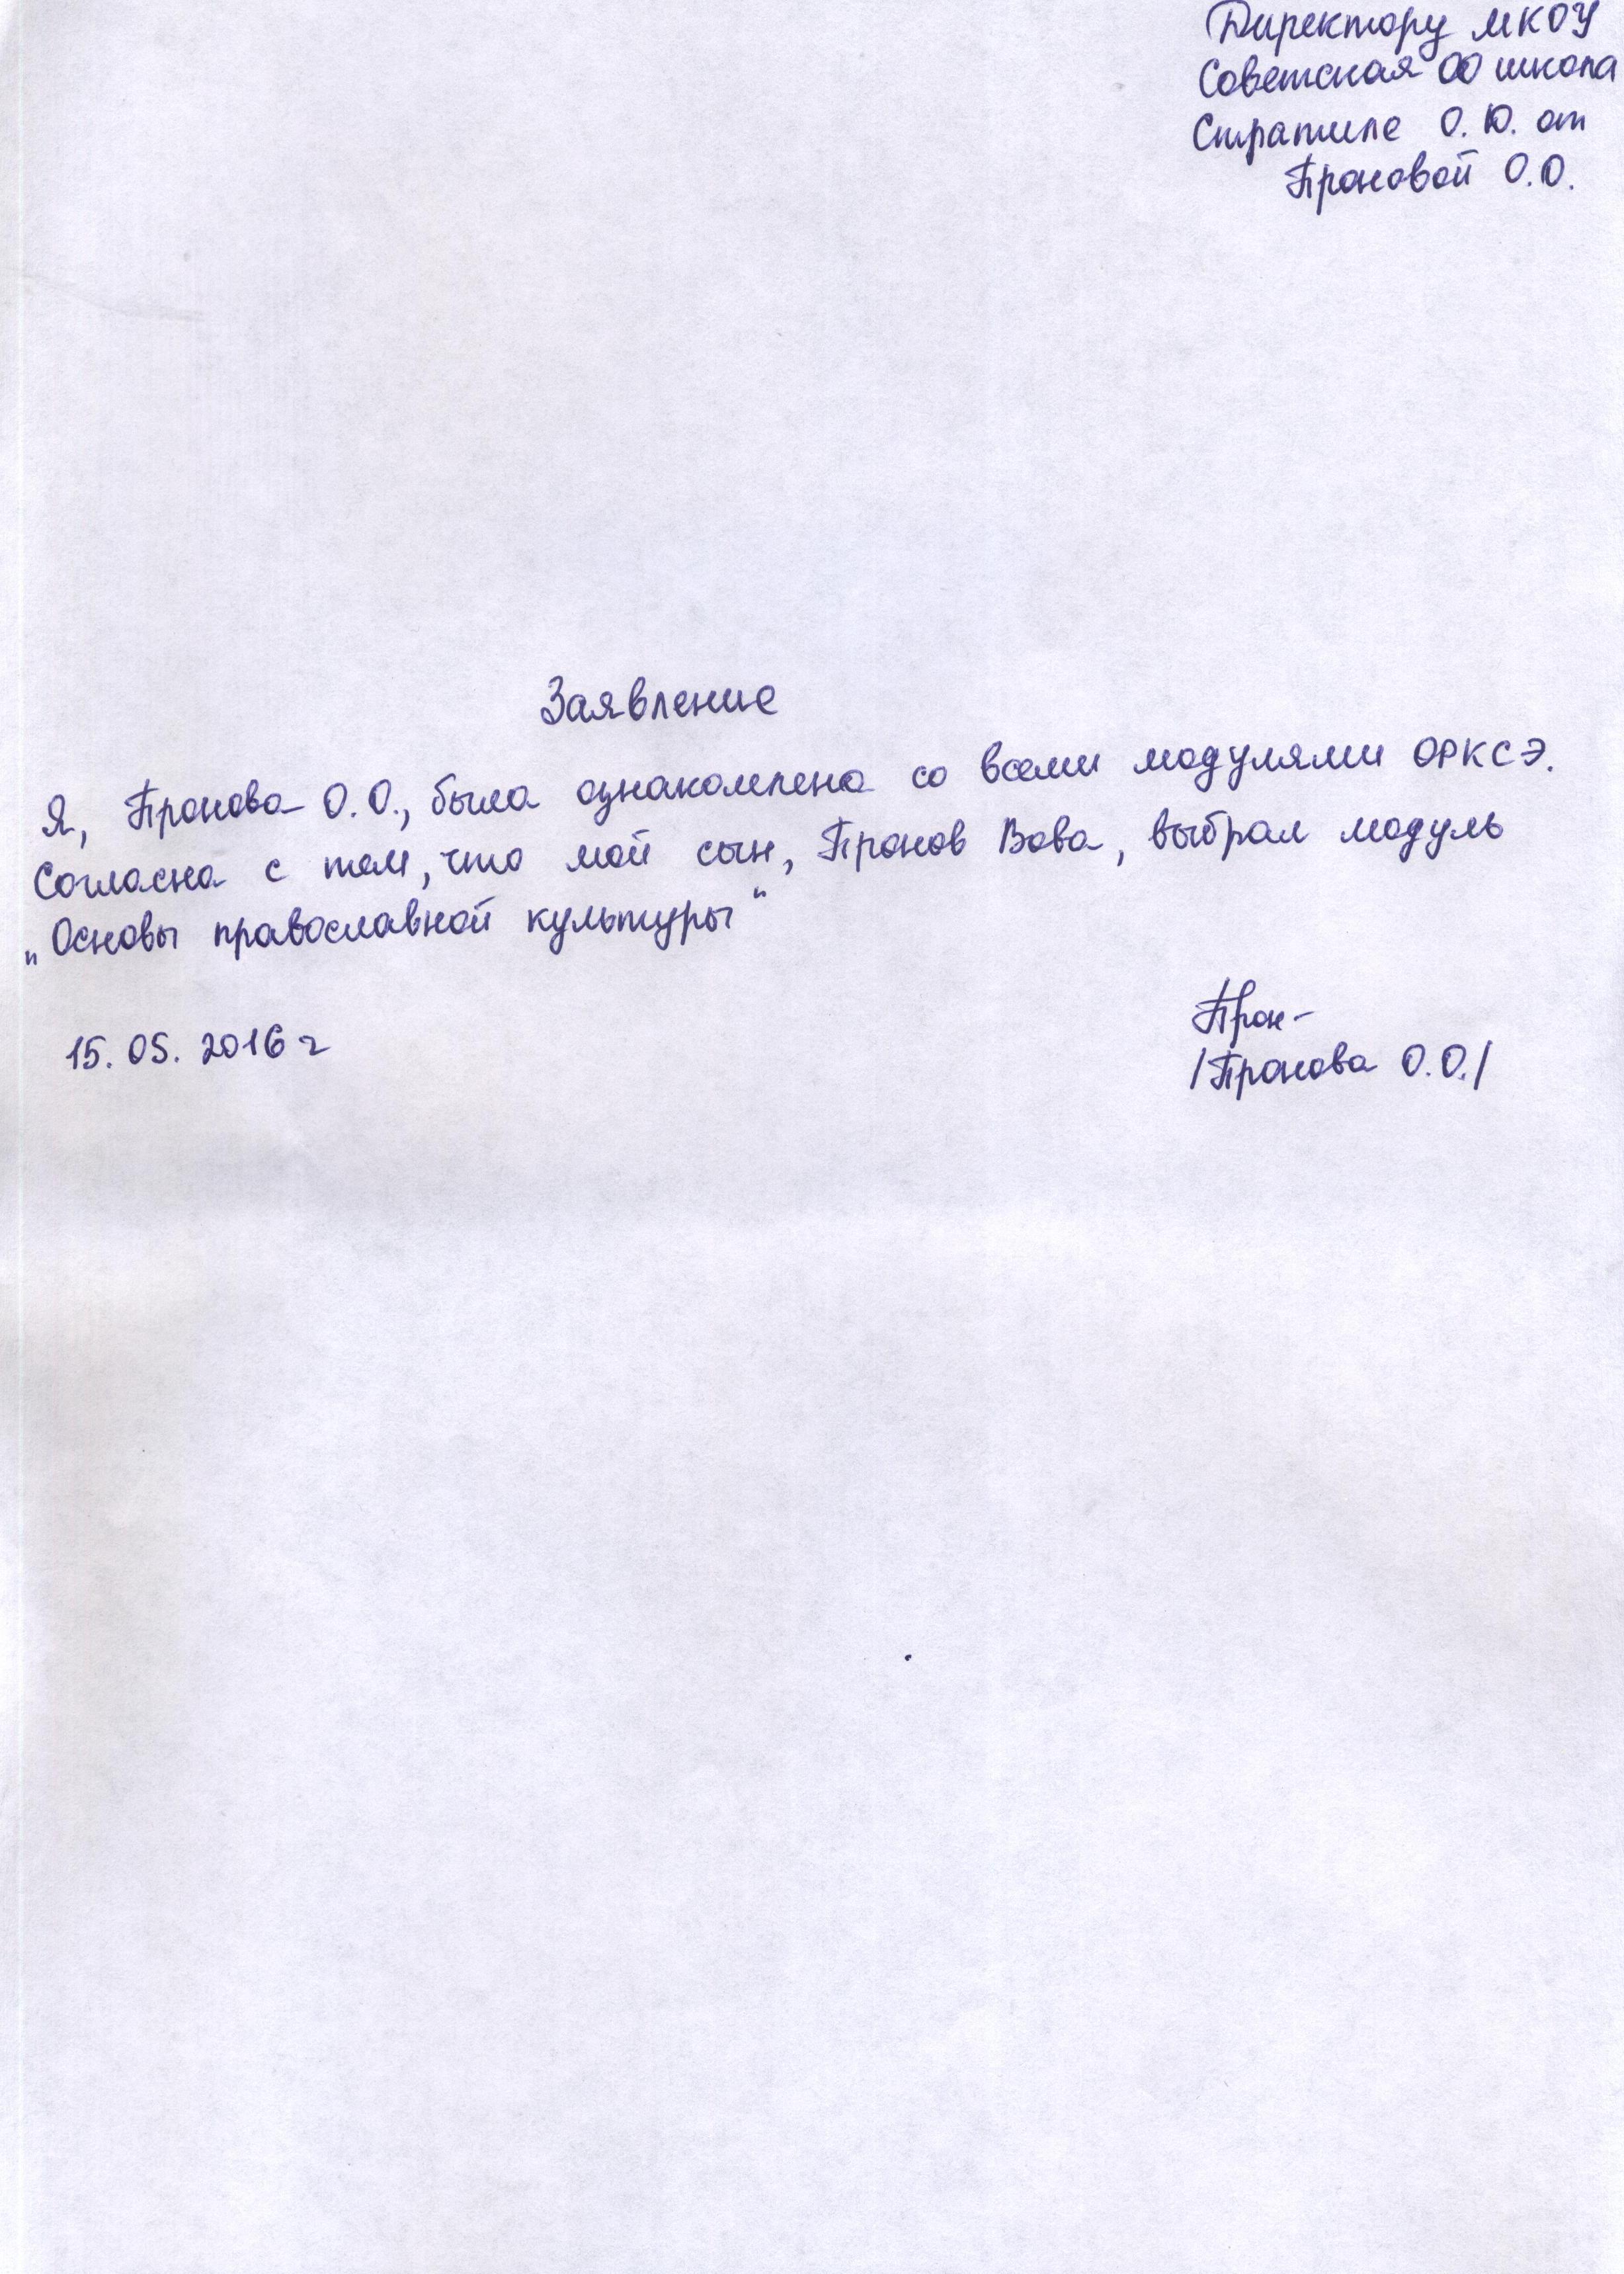 Директору МКОУ
Советская ОО школа
Стратиле О. Ю. от
Проновой О.О.
Заявление
Я, Пронова О.О., была ознакомлена со всеми модулями ОРКСЭ.
Согласна с тем, что мой сын, Пронов Вова, выбрал модуль
„Основы православной культуры“
15.05.2016 г
Прон-
/Пронова О.О./